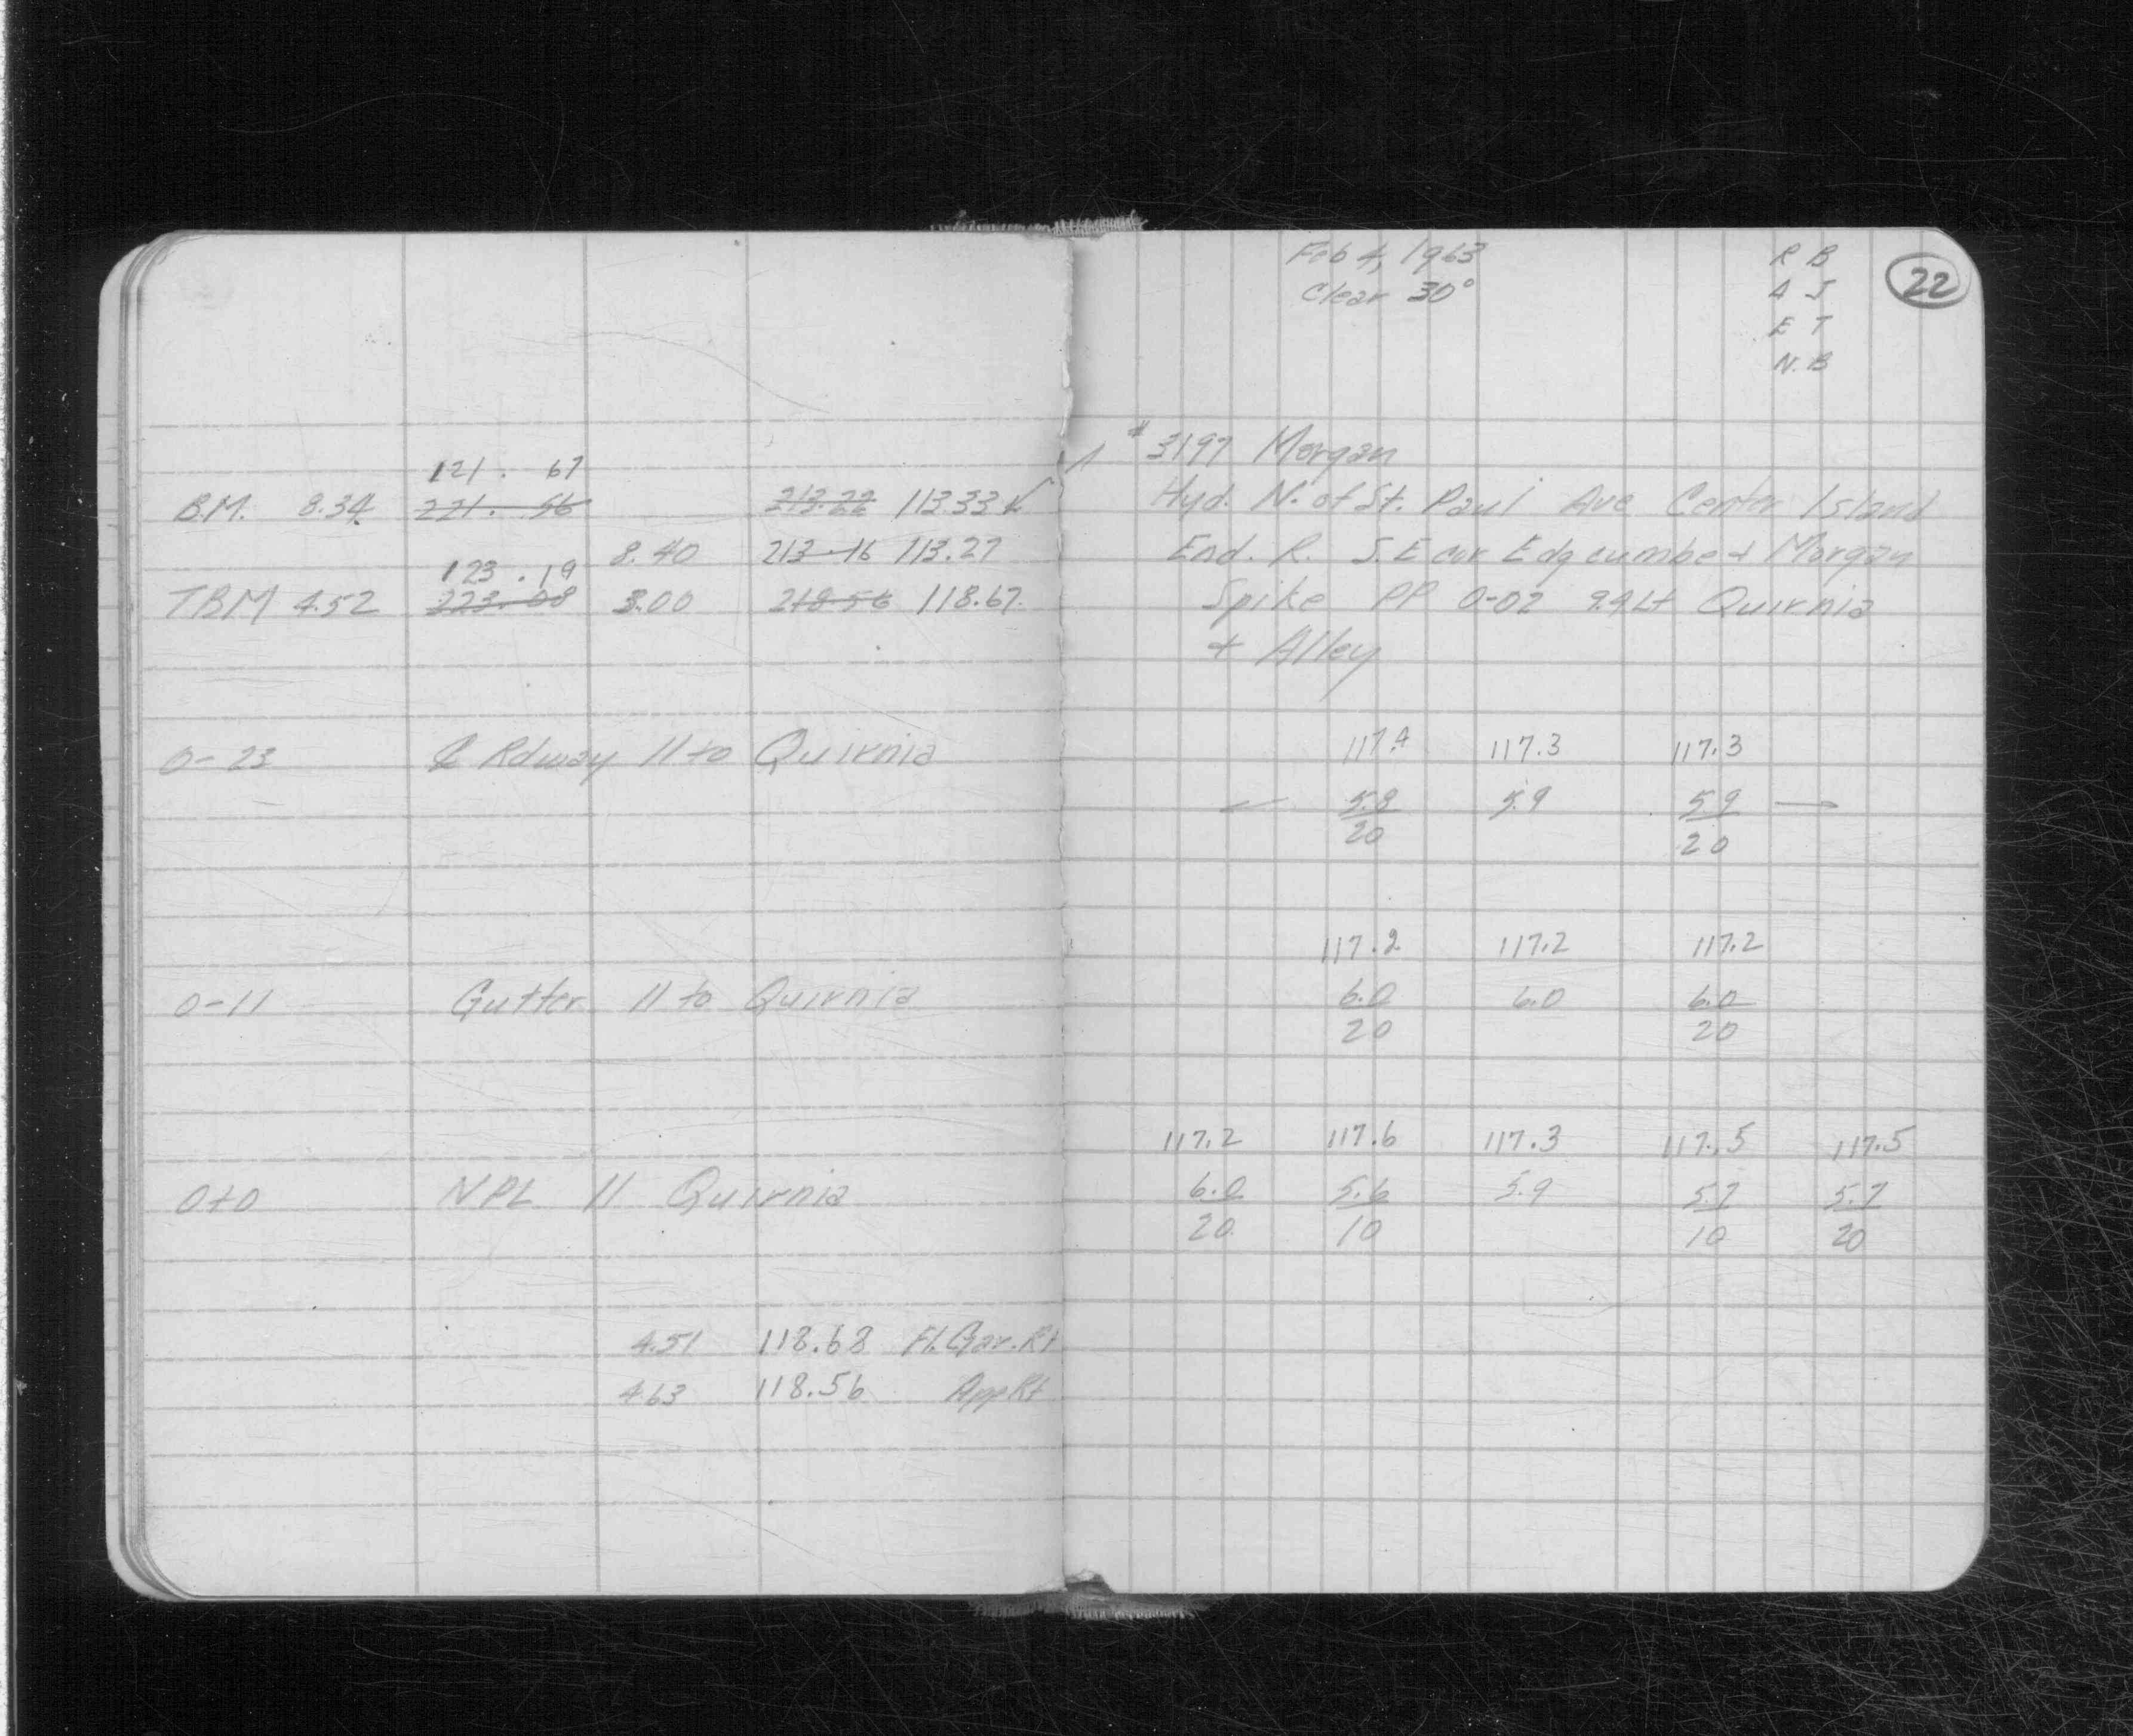 121. 67
B.M. 8.34 221. 56 213.22 113.33 ✓
8.40 213.16 113.27
123.19
TBM 4.52 223.08 3.00 218.56 118.67
0-23 ℄ Rdway 11 to Quirnia
0-11 Gutter 11 to Quirnia
0+0 NPL 11 Quirnia
4.51 118.68 Fl. Gar. Rt
4.63 118.56 App Rt
Feb 4, 1963 R B 22
Clear 30° A J
E T
N. B
# 3197 Morgan
Hyd. N. of St. Paul Ave Center Island
End. R. S.E cor Edgcumbe + Morgan
Spike PP 0-02 9.4 Lt Quirnia
+ Alley
117.4 117.3 117.3
5.8 5.9 5.9
20 20
117.2 117.2 117.2
6.0 6.0 6.0
20 20
117.2 117.6 117.3 117.5 117.5
6.0 5.6 5.9 5.7 5.7
20 10 10 20